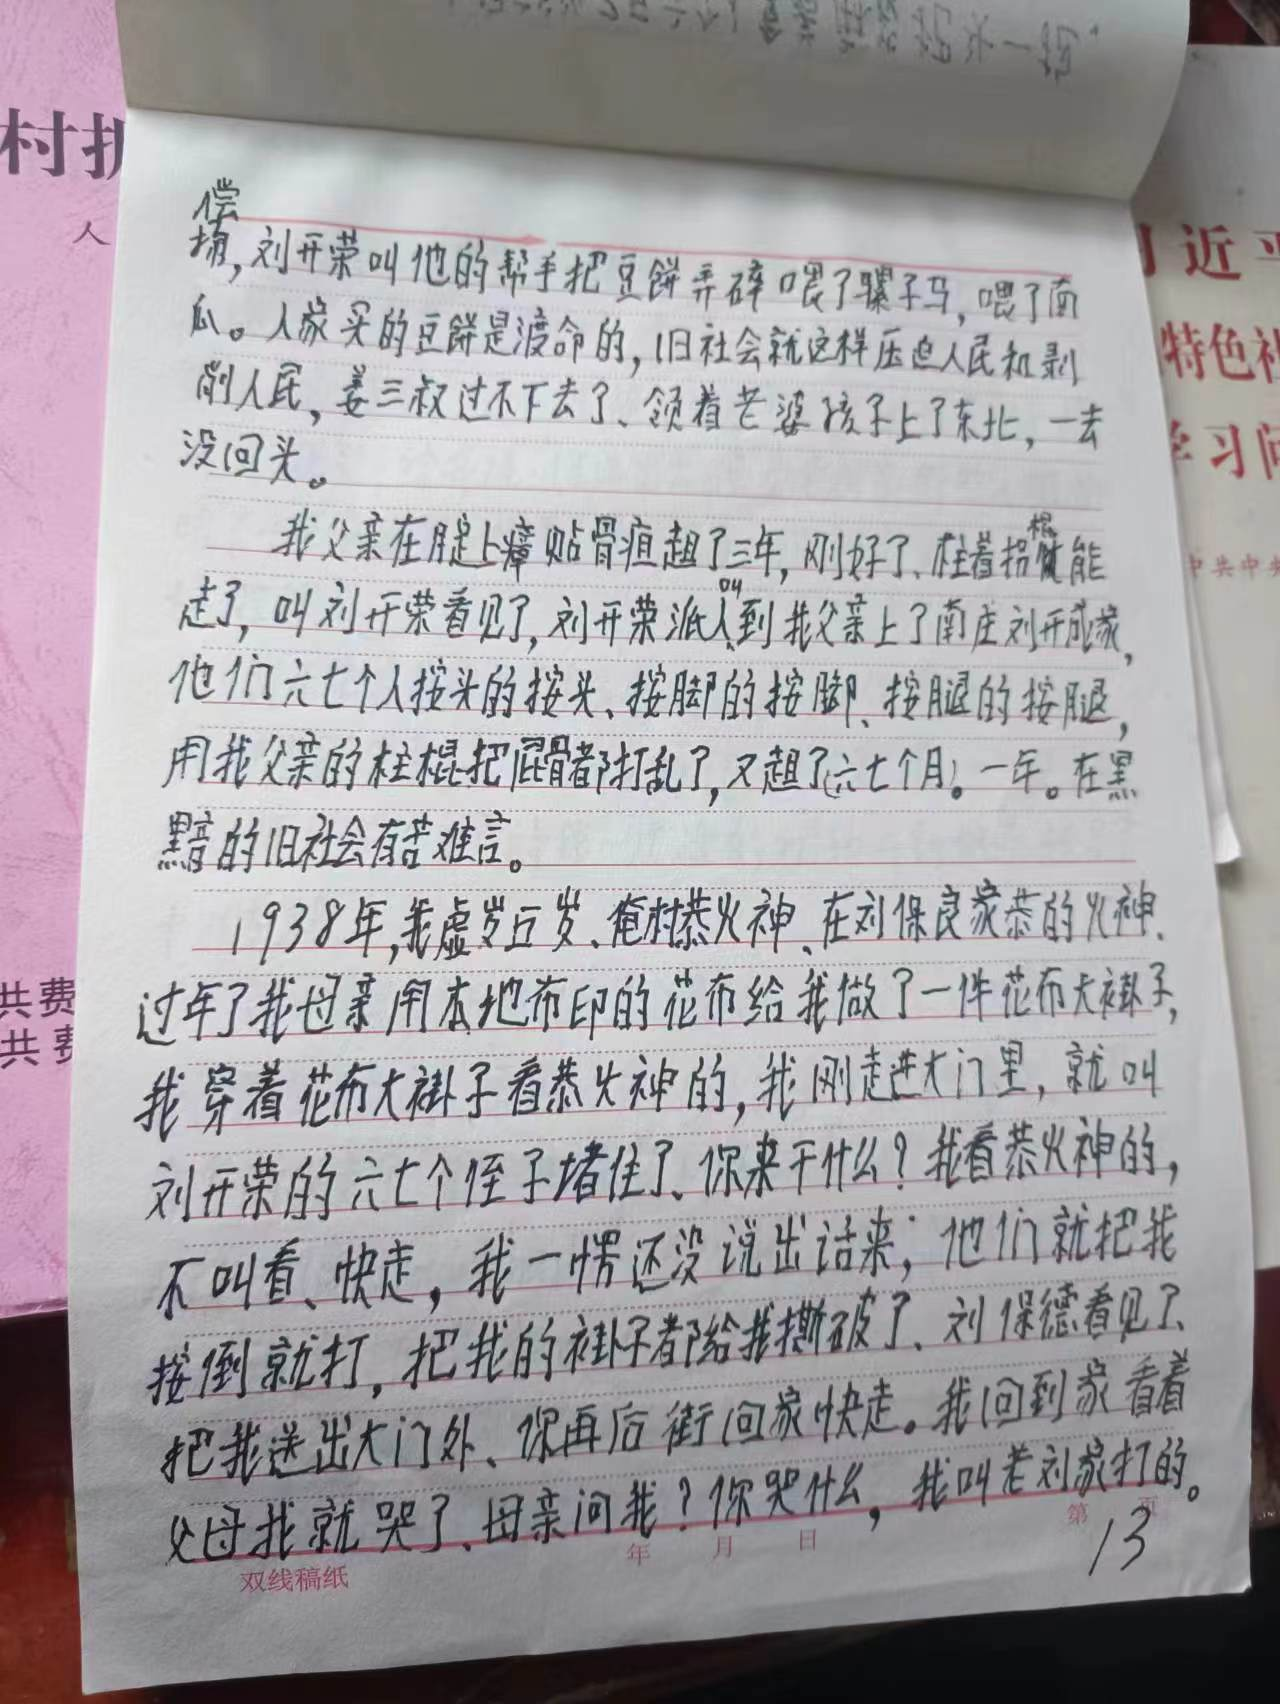 村
人
偿
损，刘开荣叫他的帮手把豆餅弄碎喂了骡子马，喂了南
瓜。人家买的豆餅是渡命的，旧社会就这样压迫人民和剥
削人民，姜三叔过不下去了、领着老婆孩子上了东北，一去
没回头。
我父亲在腚上瘴贴骨疽趄了三年，刚好了、柱着拐棍能
走了，叫刘开荣看见了，刘开荣派人叫到我父亲上了南庄刘开成家，
他们六七个人按头的按头、按脚的按脚、按腿的按腿，
用我父亲的柱棍把屁骨都打乱了，又趄了（六七个月）。一年。在黑
黑音的旧社会有苦难言。
1938年，我虚岁五岁、俺村恭火神、在刘保良家恭的火神、
过年了我母亲用本地布印的花布给我做了一件花布大褂子，
我穿着花布大褂子看恭火神的，我刚走进大门里，就叫
刘开荣的六七个侄子堵住了、你来干什么？我看恭火神的，
不叫看、快走，我一愣还没说出话来；他们就把我
按倒就打，把我的褂子都给我撕破了、刘保德看见了、
把我送出大门外、你再后街回家快走。我回到家看着
父母我就哭了、母亲问我？你哭什么，我叫老刘家打的。
第 页
年 月 日
13
双线稿纸
共费
共费
习近平
特色社
学习问
中共中央